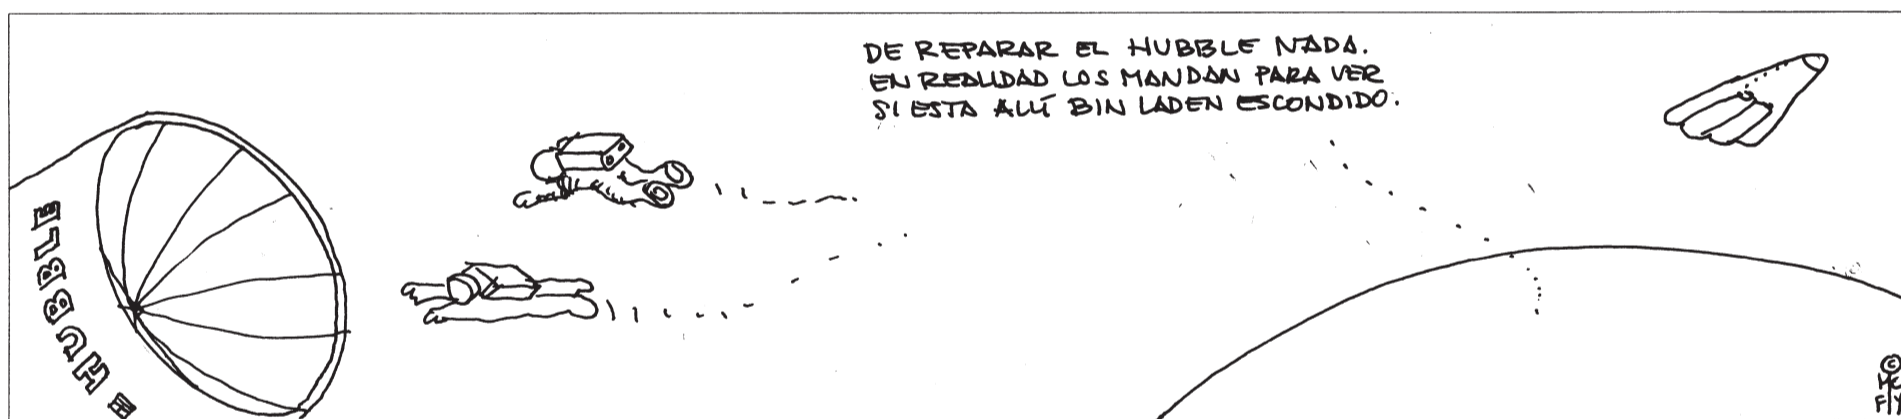 DE REPARAR EL HUBBLE NADA.
EN REALIDAD LOS MANDAN PARA VER
SI ESTA ALLÍ BIN LADEN ESCONDIDO.
HUBBLE
©
MC
FLY